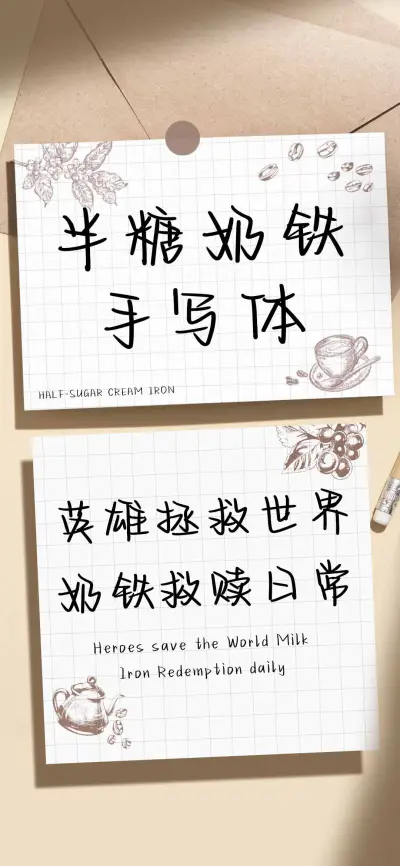 半糖奶铁
手写体
HALF-SUGAR CREAM IRON
英雄拯救世界
奶铁救赎日常
Heroes save the World Milk
Iron Redemption daily